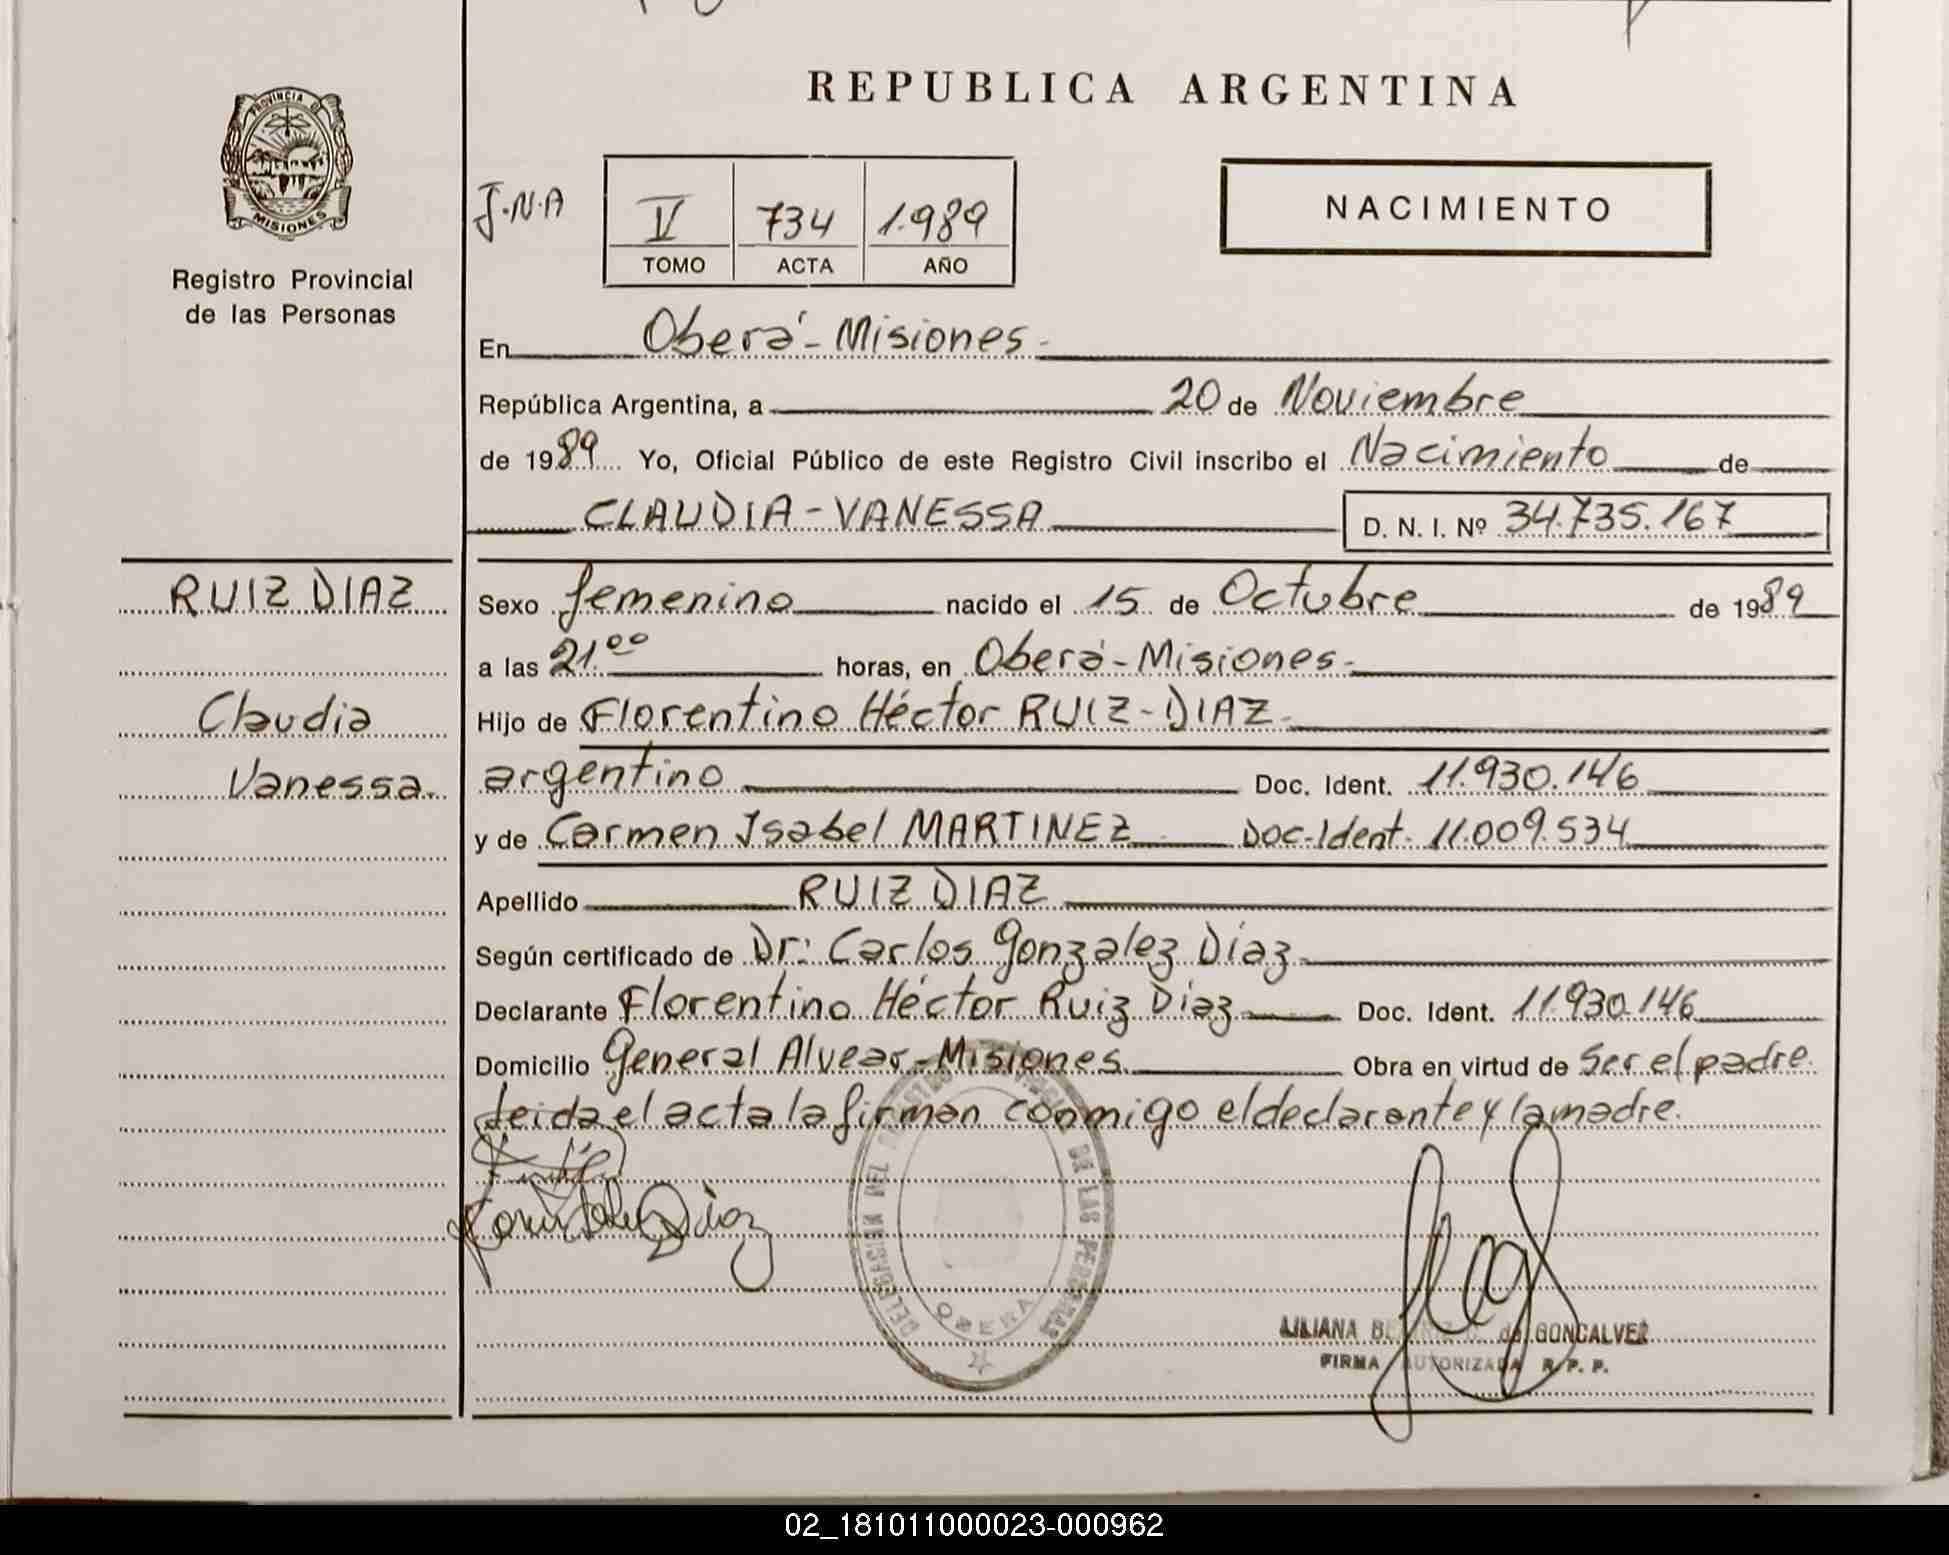 REPUBLICA ARGENTINA
PROVINCIA DE
MISIONES
Registro Provincial
de las Personas
J.N.A
V 734 1.989
TOMO ACTA AÑO
NACIMIENTO
En Oberá - Misiones -
República Argentina, a 20 de Noviembre
de 1989 Yo, Oficial Público de este Registro Civil inscribo el Nacimiento de
CLAUDIA - VANESSA D. N. I. Nº 34.735.167
RUIZ DIAZ
Claudia
Vanessa.
Sexo femenino nacido el 15 de Octubre de 1989
a las 21.00 horas, en Oberá - Misiones -
Hijo de Florentino Héctor RUIZ - DIAZ -
argentino Doc. Ident. 11.930.146
y de Carmen Isabel MARTINEZ Doc-Ident. 11.009.534
Apellido RUIZ DIAZ
Según certificado de Dr: Carlos Gonzalez Díaz
Declarante Florentino Héctor Ruiz Díaz Doc. Ident. 11.930.146
Domicilio General Alvear - Misiones Obra en virtud de Ser el padre.
Leida el acta la firman conmigo el declarante y la madre.
DELEGACION DEL REGISTRO PROVINCIAL DE LAS PERSONAS
LILIANA de GONCALVEZ
FIRMA AUTORIZADA R. P. P.
02_181011000023-000962